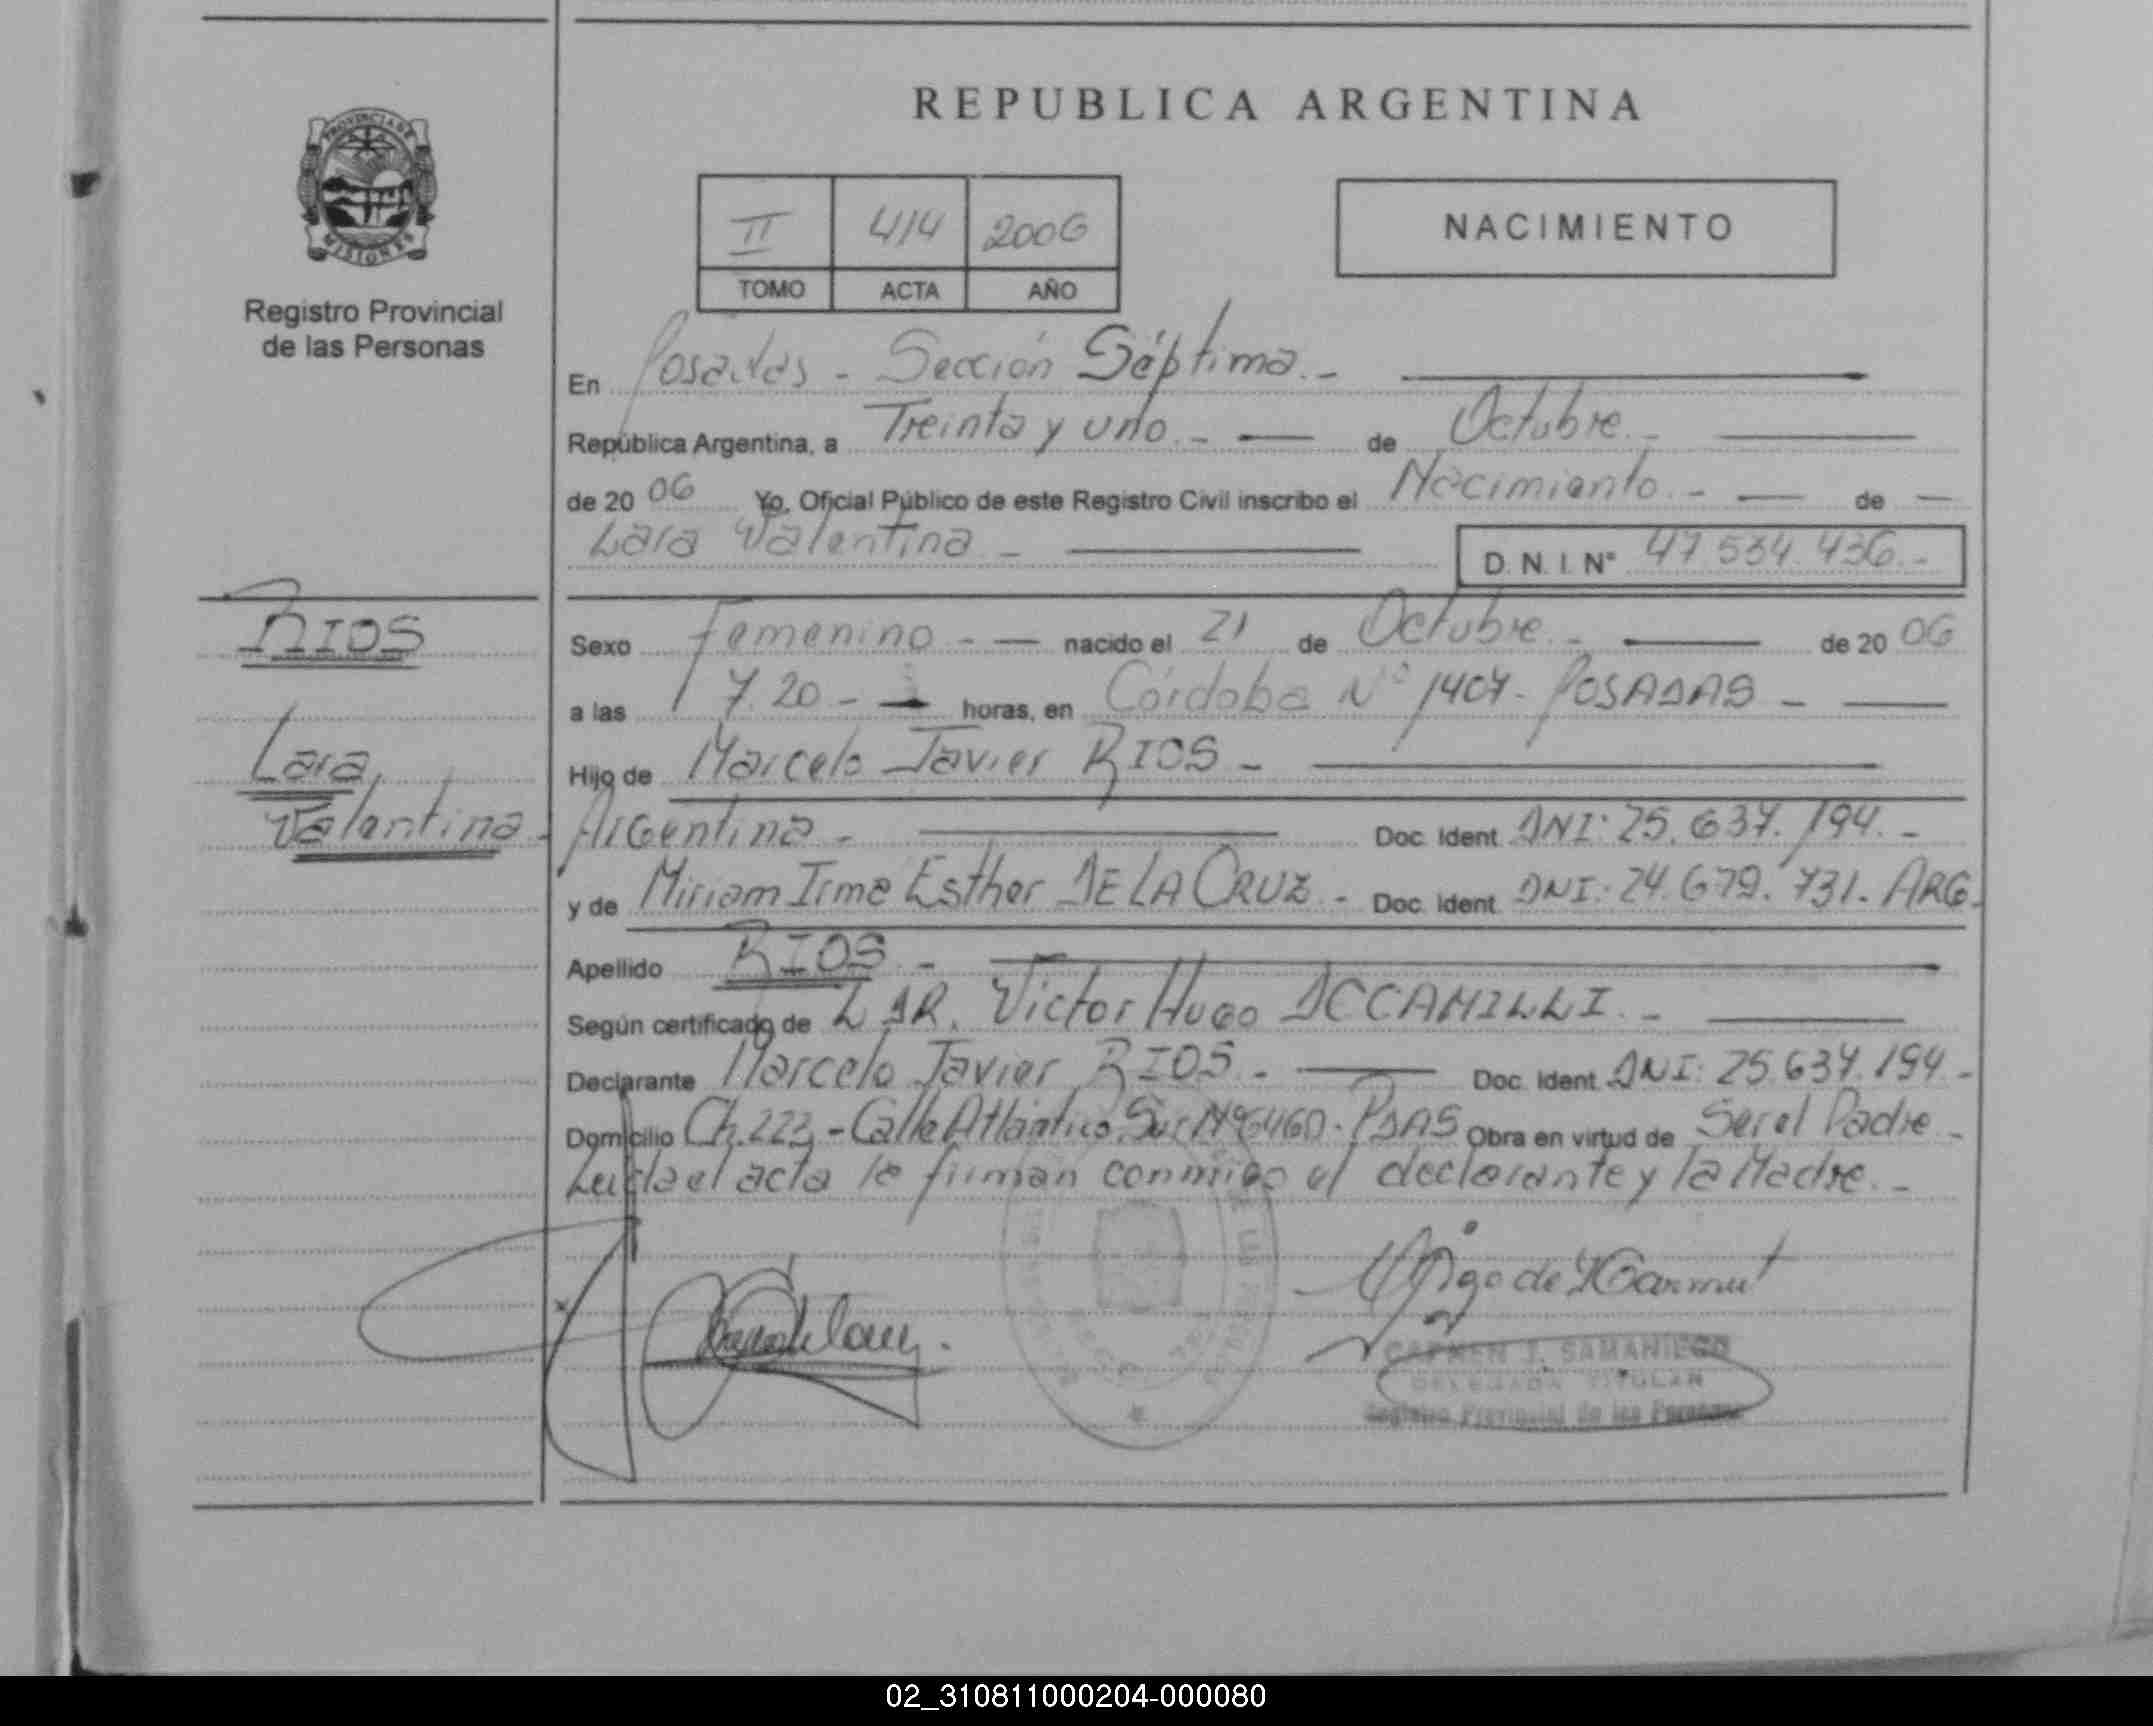 REPUBLICA ARGENTINA
PROVINCIA DE
MISIONES
Registro Provincial
de las Personas
II 414 2006
TOMO ACTA AÑO
NACIMIENTO
En Posadas - Sección Séptima.-
República Argentina, a Treinta y uno.- de Octubre.-
de 20 06 Yo, Oficial Público de este Registro Civil inscribo el Nacimiento.- de
Lara Valentina - D. N. I. Nº 47.534.436.-
RIOS
Lara
Valentina.-
Sexo Femenino - nacido el 21 de Octubre.- de 20 06
a las 7.20 - horas, en Córdoba Nº 1407- POSADAS -
Hijo de Marcelo Javier RIOS -
Argentina - Doc. Ident. DNI: 25.637.194.-
y de Miriam Irma Esther DE LA CRUZ.- Doc. Ident. DNI: 24.679.731. ARG.
Apellido RIOS -
Según certificado de L DR. Victor Hugo DCCAMILLI.-
Declarante Marcelo Javier RIOS.- Doc. Ident. DNI: 25.637.194-
Domicilio Ch. 223 - Calle Atlántico Sur Nº 6460- PDAS Obra en virtud de Ser el Padre -
Leida el acta la firman conmigo el declarante y la Madre.-
CARMEN J. SAMANIEGO
DELEGADA TITULAR
Registro Provincial de las Personas
02_310811000204-000080